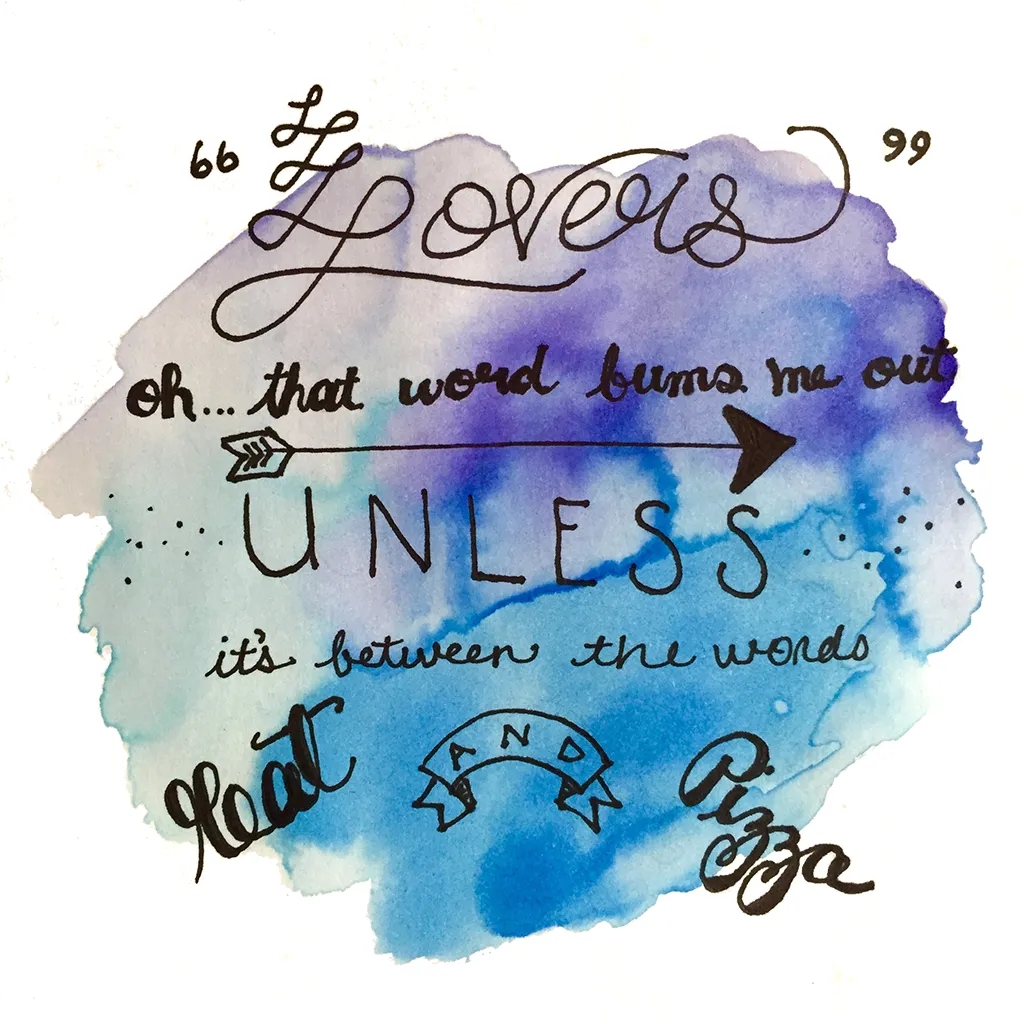 “Lovers”
oh... that word bums me out
UNLESS
it's between the words
Meat AND Pizza